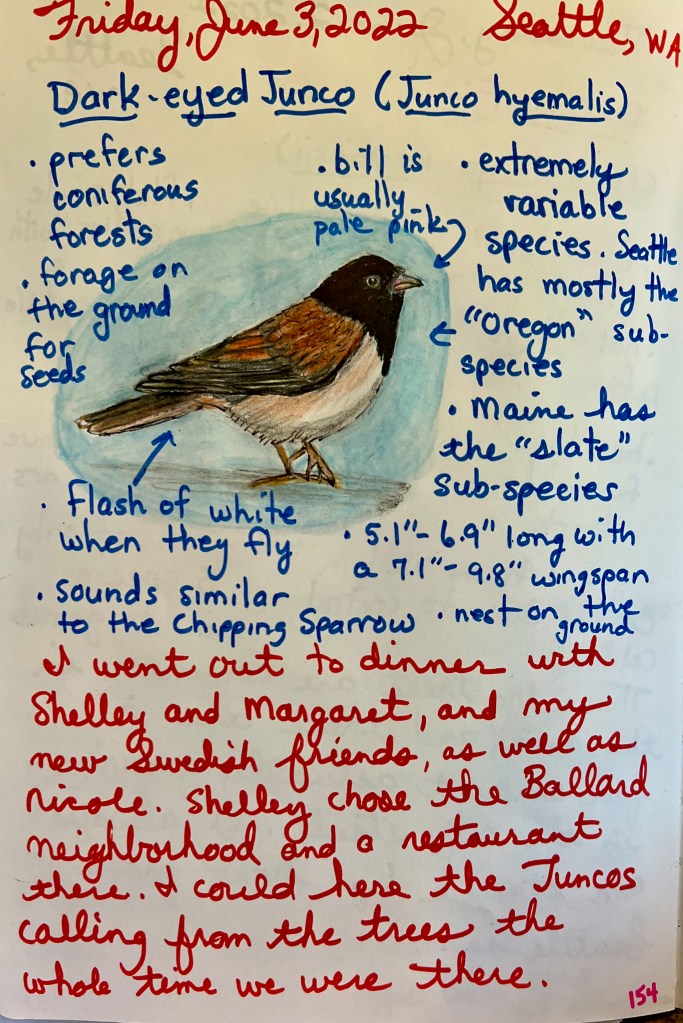 Friday, June 3, 2022 Seattle, WA
Dark-eyed Junco (Junco hyemalis)
• prefers
coniferous
forests
• forage on
the ground
for
seeds
• bill is
usually
pale pink
• extremely
variable
species. Seattle
has mostly the
"Oregon" sub-
species
• Maine has
the "slate"
sub-species
• Flash of white
when they fly
• 5.1"- 6.9" long with
a 7.1"- 9.8" wingspan
• sounds similar
to the Chipping Sparrow
• nest on the
ground
I went out to dinner with
Shelley and Margaret, and my
new Swedish friends, as well as
Nicole. Shelley chose the Ballard
neighborhood and a restaurant
there. I could here the Juncos
calling from the trees the
whole time we were there.
154